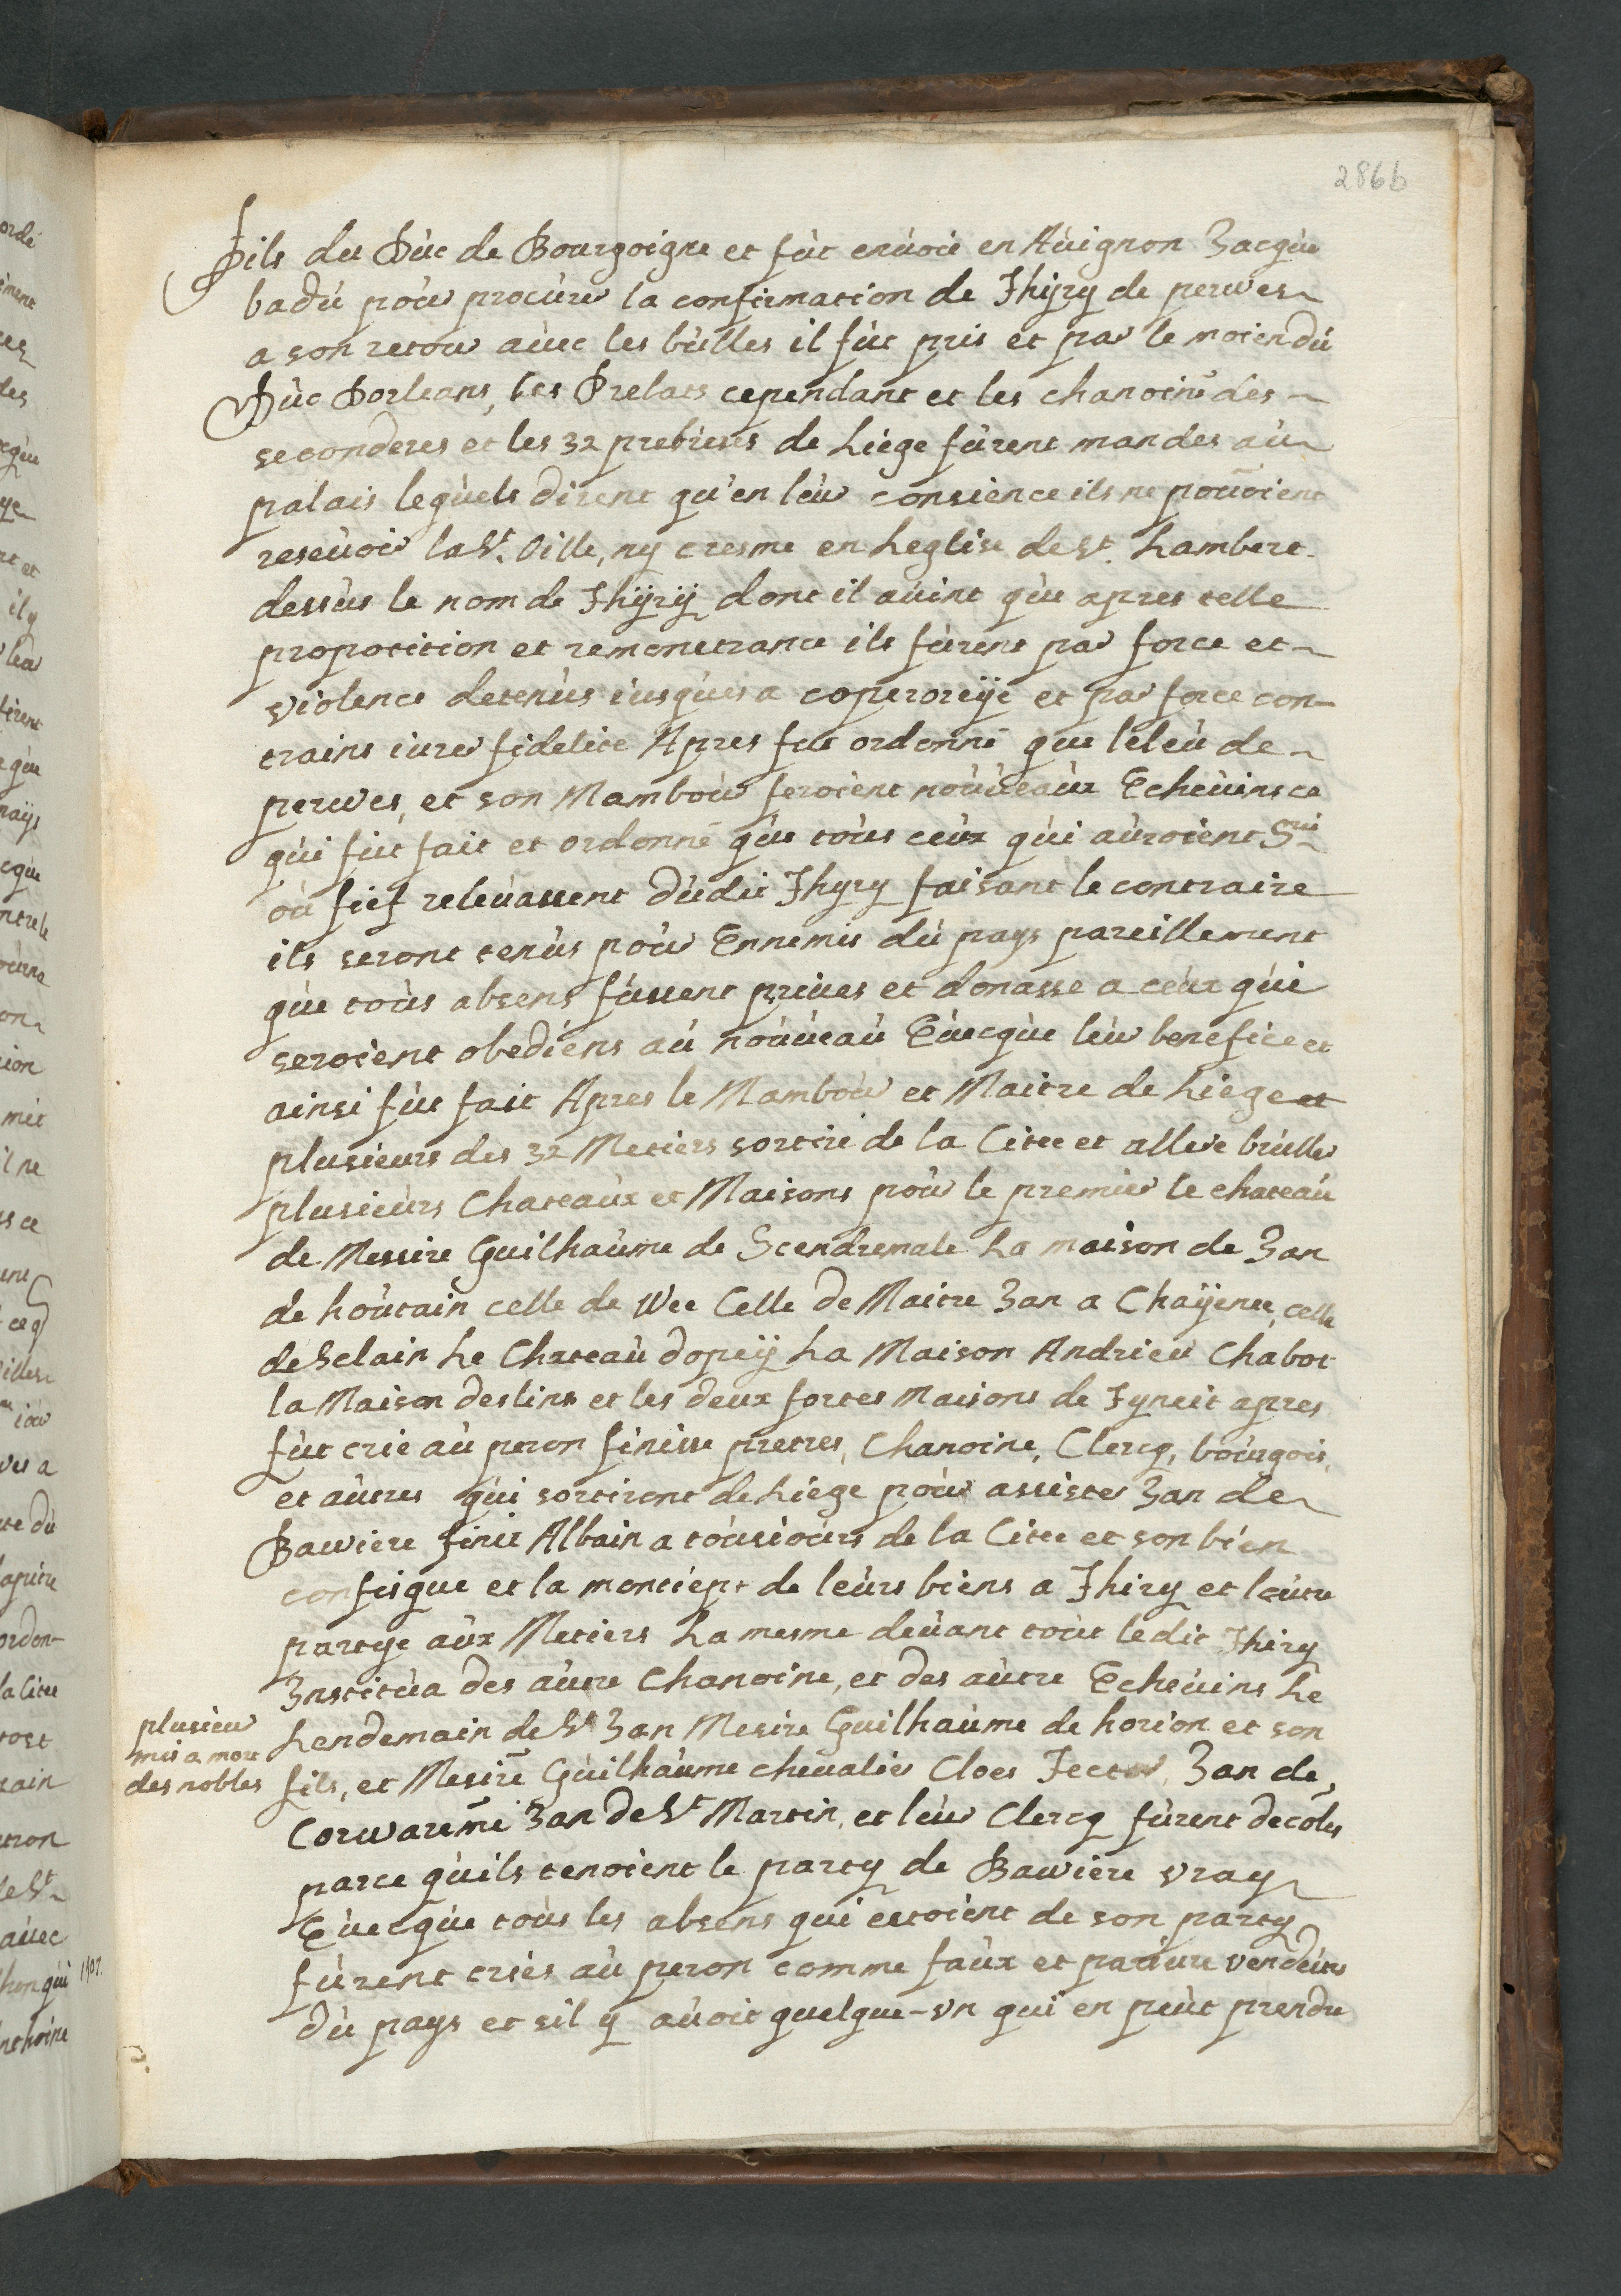 286b
fils du Dùc de Bourgoigne et fùt enùoié en Aùignon Jacqùe
badù pòur procùrer la confirmation de Thÿry de perwes
a son retour aùec les bùlles il fùt pris et par le moien dù
Dùc Dorleans, les Prelats cependant et les chanoine des
seconderes et les 32 prebtres de Liége fùrent mandes aù
palais leqùels dirent qu'en leùr consience ils ne poùoient
reseùoir la St. Oille, ny cresme en Leglise de St. Lambert
dessùs le nom de Thÿrÿ dont il aùint qùe apres telle
proposition et remonetrance ils fùrent par force et
violence detenùs iusqùes a coperoreÿe et par force con-
trains iurer fidelite Apres fut ordonné que léleù de
perwes, et son Mamboùr feroient noùùeaùx Echeùins ce
qùi fut fait et ordonné qùe toùs ceùx qùi aùroient Srie
où fief releùassent dùdit Thyry faisant le contraire
ils seront tenùs poùr Ennemis dù pays pareillement
qùe toùs absens fùssent priues et donasse a ceùx qùi
seroient obediens aù noùùeaù Eùecqùe leùr benefice et
ainsi fùt fait Apres le Mamboùr et Maitre de Liége et
plusieurs des 32 Metiers sortire de la Citee et allere brùller
plusieùrs Chateaùx et Maisons poùr le premier le chateaù
de Messire Guilhaùme de Scendremale La maison de Jan
de hoùtain celle de Wee Celle de Maitre Jan a Chaÿenee, celle
de Selain Le Chateaù dopeÿ La Maison Andrieu Chabot
la Maison deslins et les deux fortes Maisons de Fyneit apres
fùt crié aù peron finisse pretres, Chanoine, Clercq, boùrgois,
et aùtres qùi sortirent de Liége poùr assister Jan de
Bawiere finit Albain a toùsioùrs de la Citee et son bien
confisque et la montiept de leùrs biens a Thiry et laùtre
partye aùx Metiers La mesme deùant toùt ledit Thiry
Institùa des aùtre Chanoine, et des aùtre Echeùins Le
Lendemain de St Jan Mesire Guilhaùme de horion et son
plusieur
mis a mort
des nobles
fils, et Mesire Gùilhaùme cheualier Cloes Jector, Jan de
Corwareme Jan de St Martin, et leùr Clercq fùrent decolés
parce qùils tenoient le party de Bawiere vray
Eùecqùe toùs les absens qui estoient de son party
fùrent criés aù peron comme faùx et pariure vendeùr
dù pays et sil y aùoit quelque-vn qui en peùt prendre